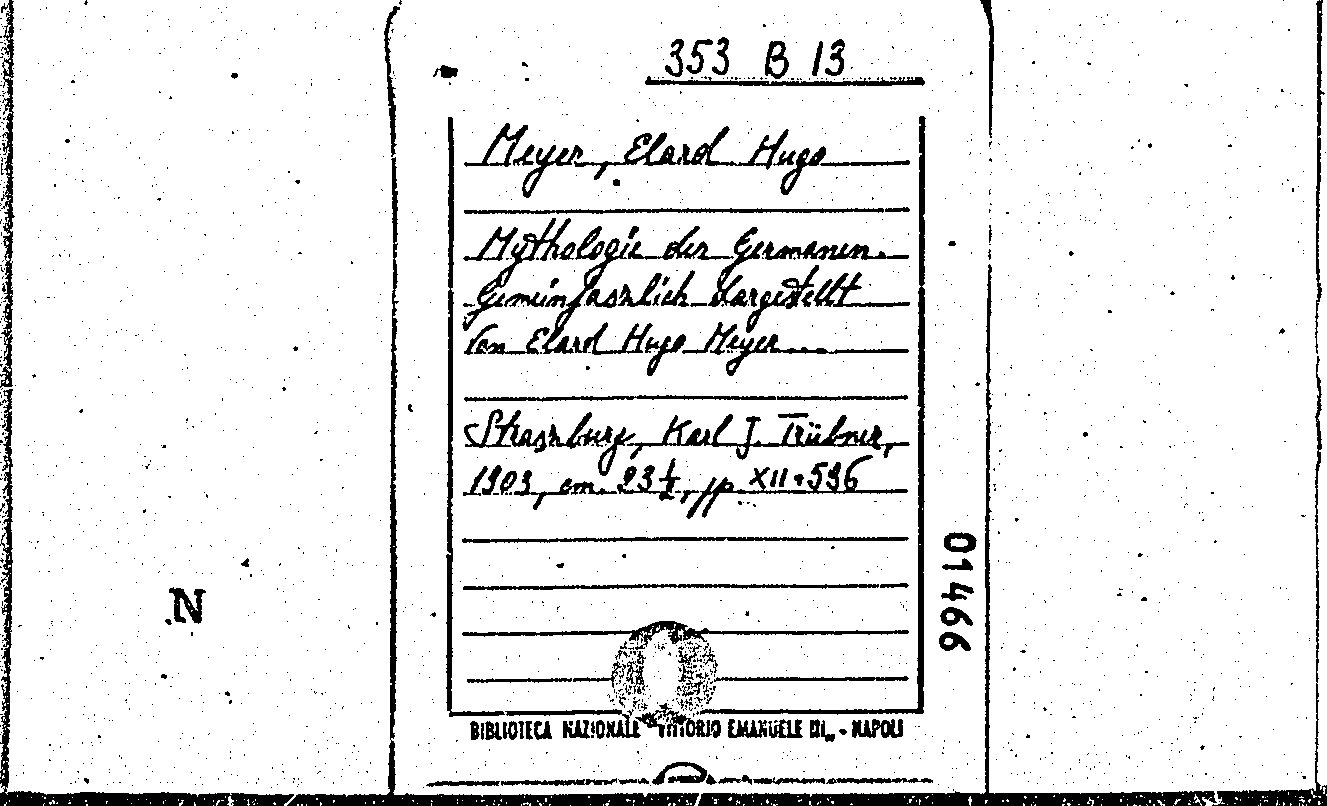 353 B 13
Meyer, Elard Hugo
Mythologie der Germanen.
Gemeinfasslich dargestellt
von Elard Hugo Meyer...
Strassburg, Karl J. Trübner,
1903, cm. 23½, pp. XII-536
01466
N
BIBLIOTECA NAZIONALE VITTORIO EMANUELE III - NAPOLI